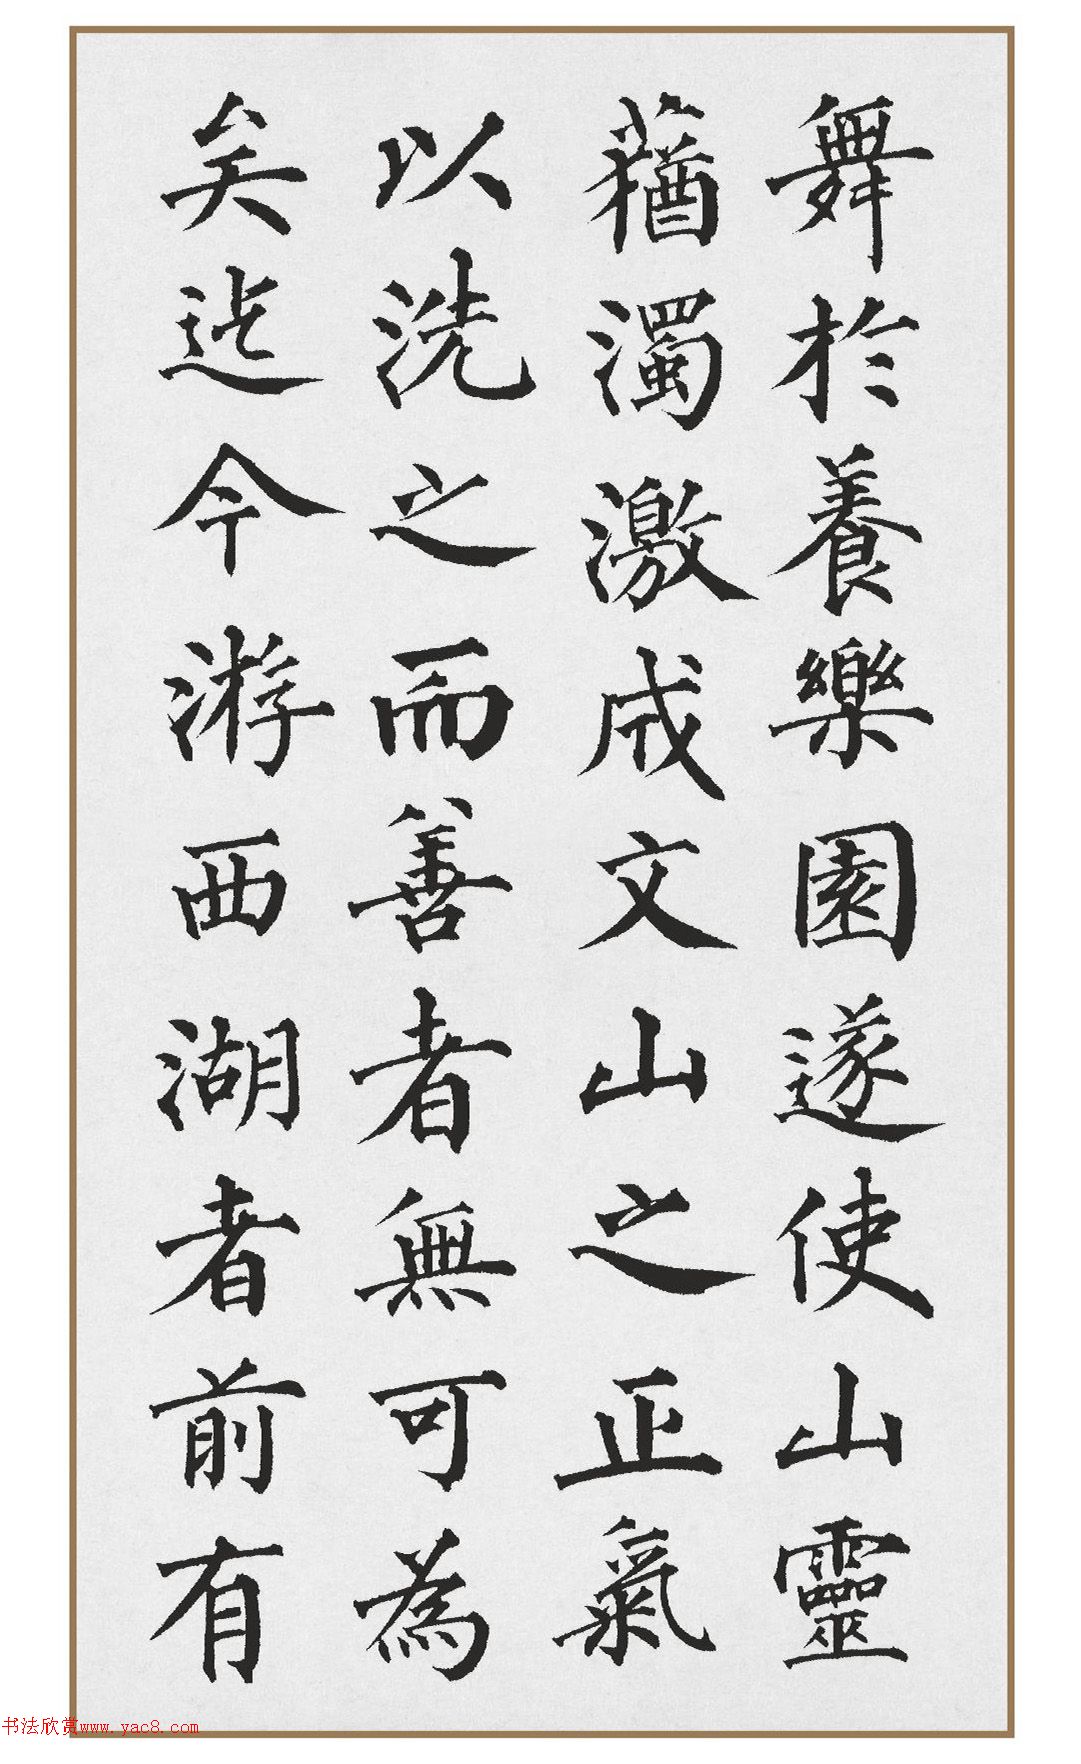 舞於養樂園遂使山靈
蕕濁激成文山之正氣
以洗之而善者無可為
矣迄今游西湖者前有
书法欣赏www.yac8.com